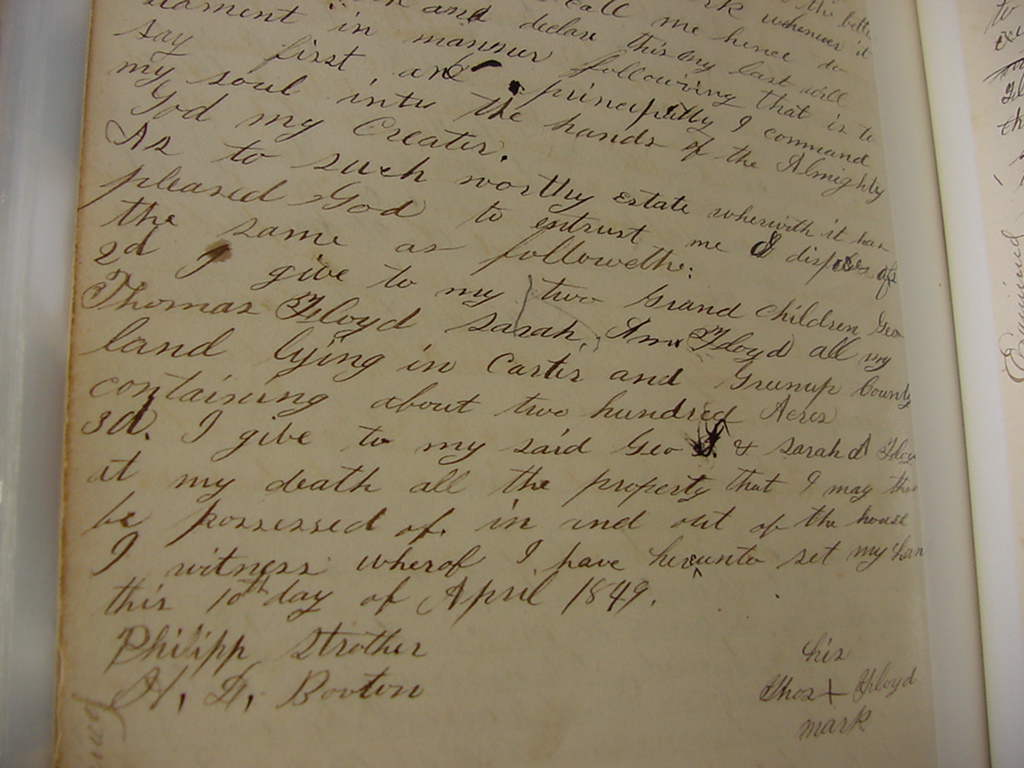 call me hence do
and declare this my last will
in manner following that is to
say first and principlly I command
my soul into the hands of the Almighty
God my Creater.
As to such worthy estate wherewith it has
pleased God to entrust me I disposes of
the same as followeth:
2d I give to my two Grand children Geo
Thomas Floyd Sarah Ann Floyd all my
land lying in Carter and Greenup County
containing about two hundred Acres
3d. I give to my said Geo & Sarah A Floy
at my death all the property that I may then
be possessed of. in and out of the house
I witness wherof I have hereunto set my han
this 10th day of April 1849.
Philipp Strother
H. A. Booton
his
Thos + Floyd
mark